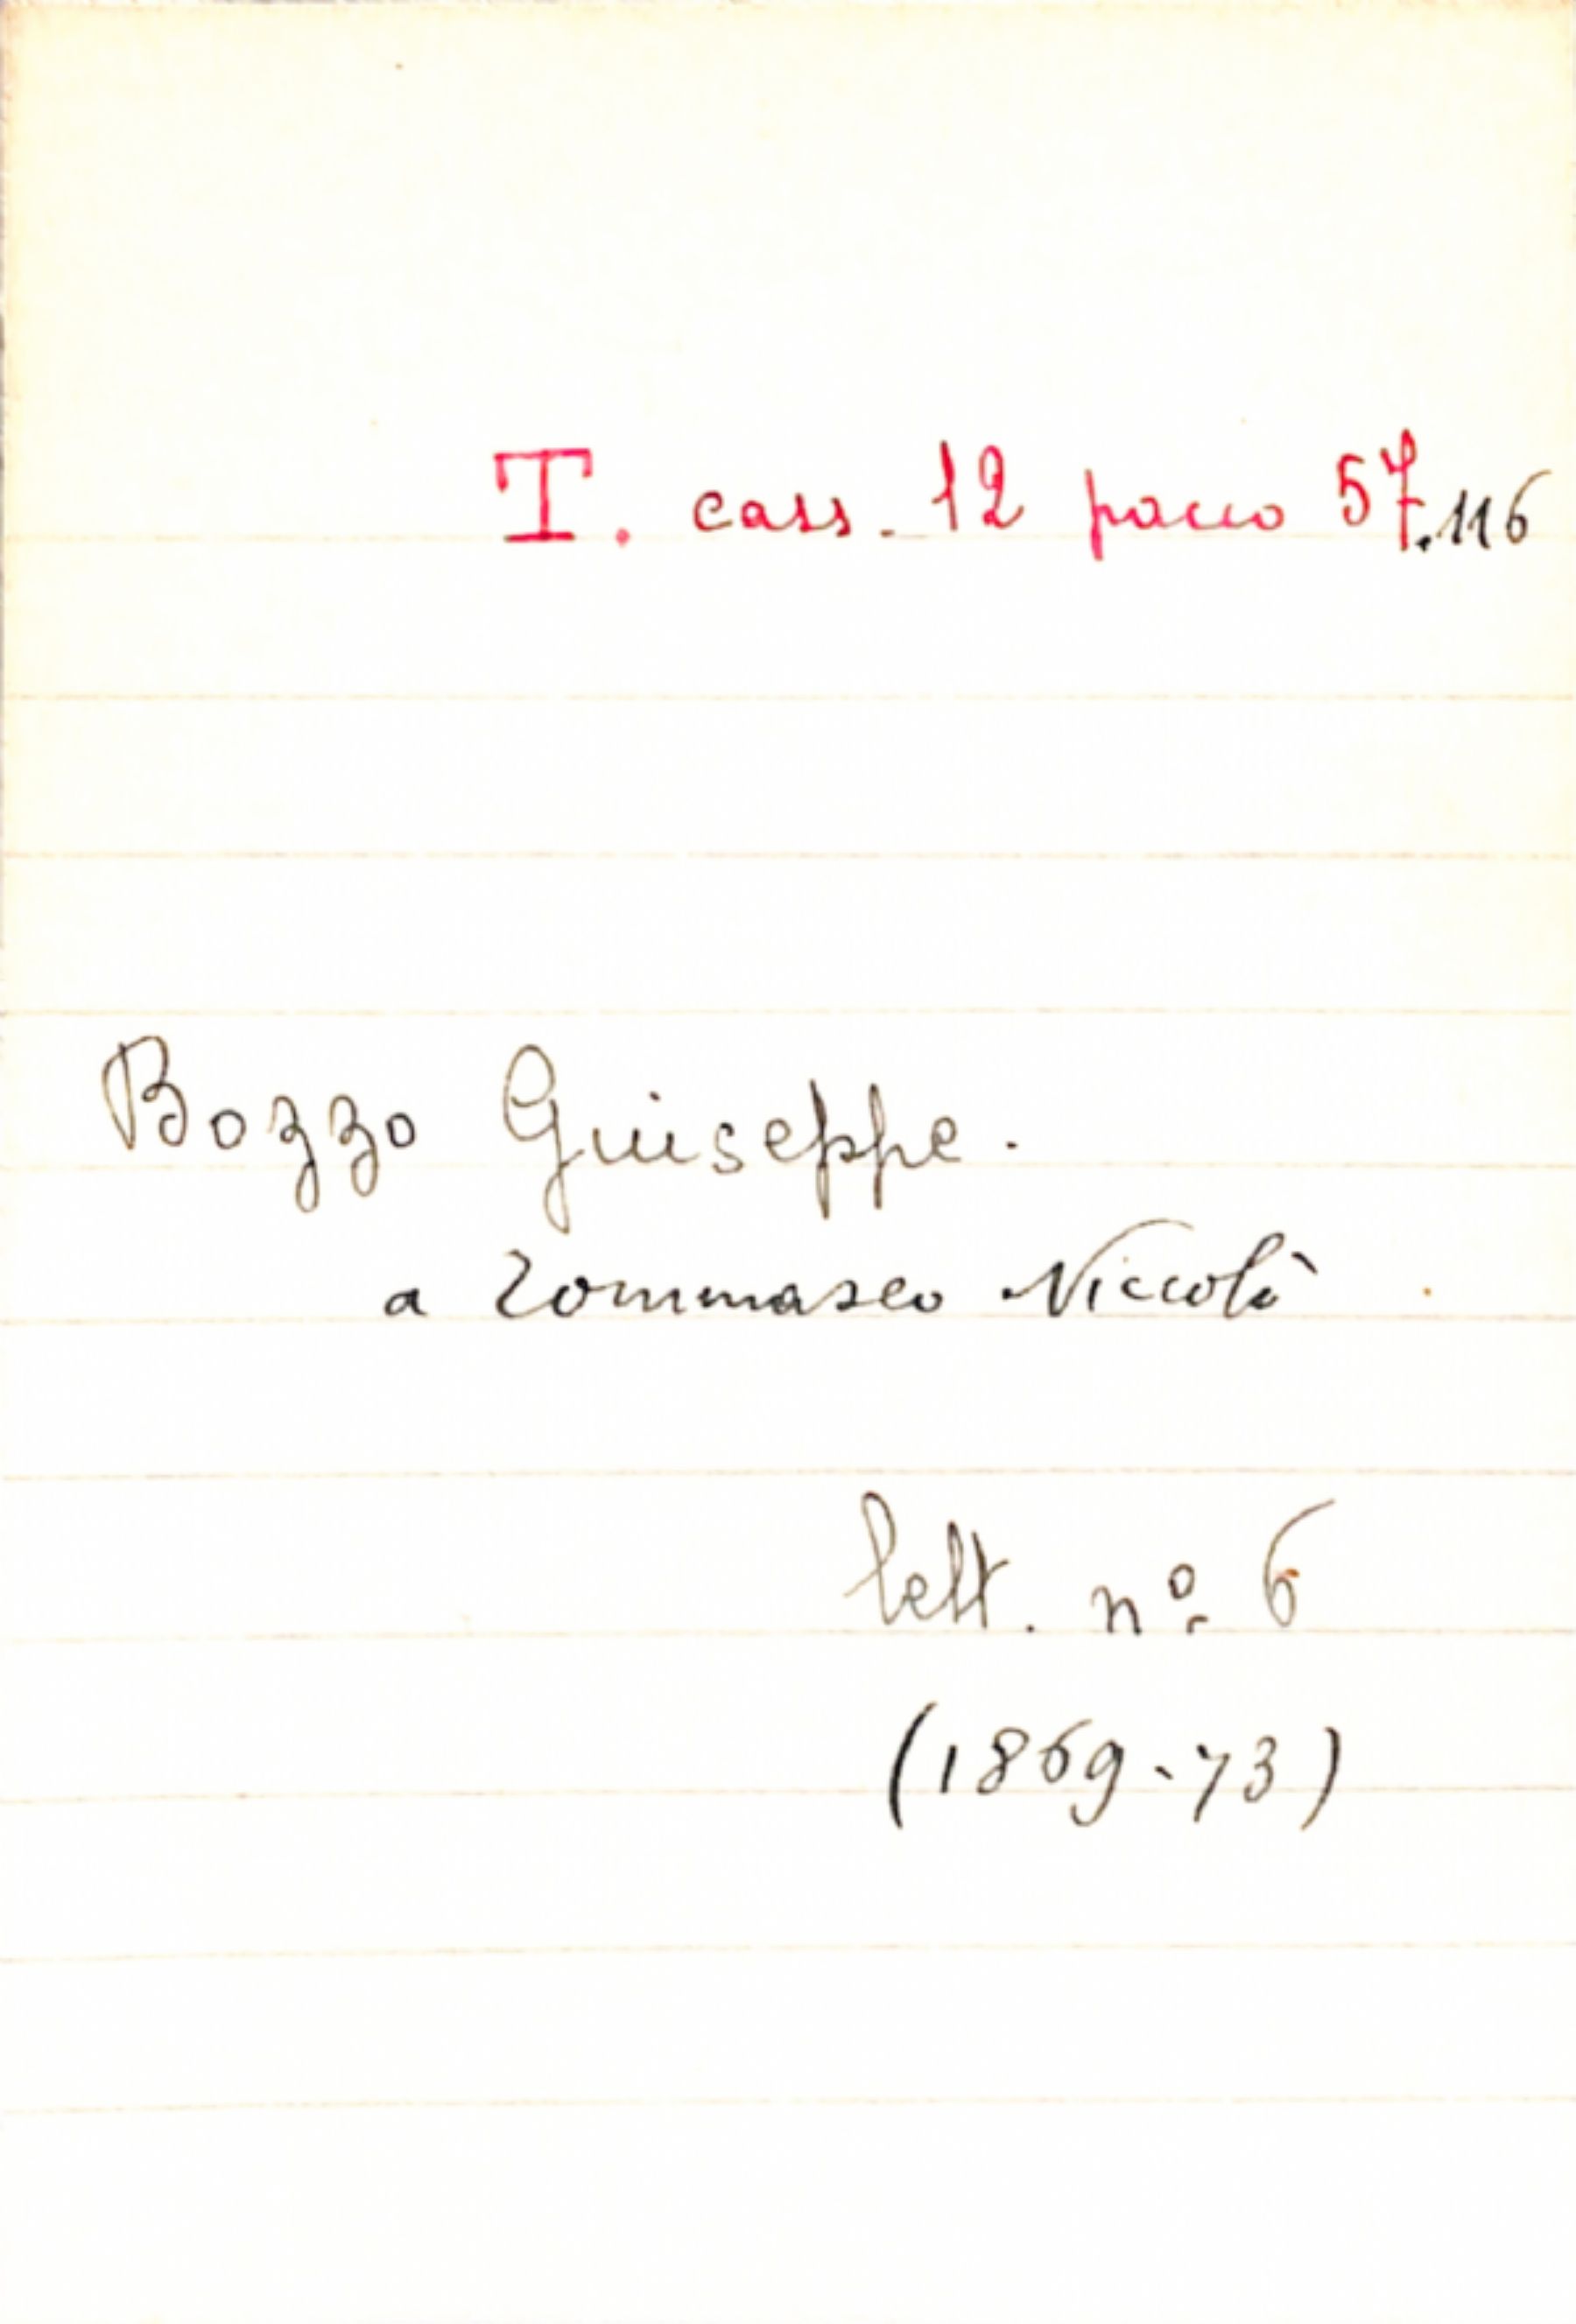 T. cass. 12 pacco 57.116
Bozzo Giuseppe.
a Tommaseo Niccolò
lett. nº 6
(1869-73)